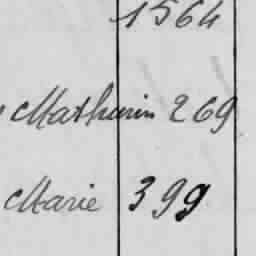 1564
Mathurin 269
Marie 399